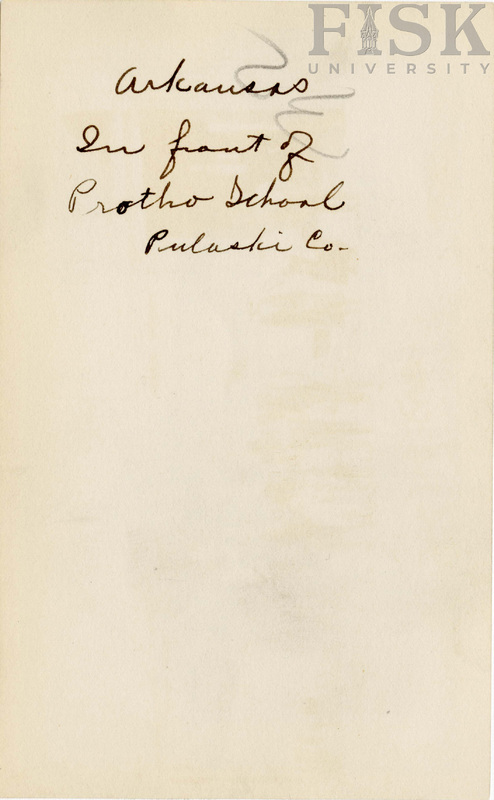 FISK
UNIVERSITY
Arkansas
In front of
Protho School
Pulaski Co.